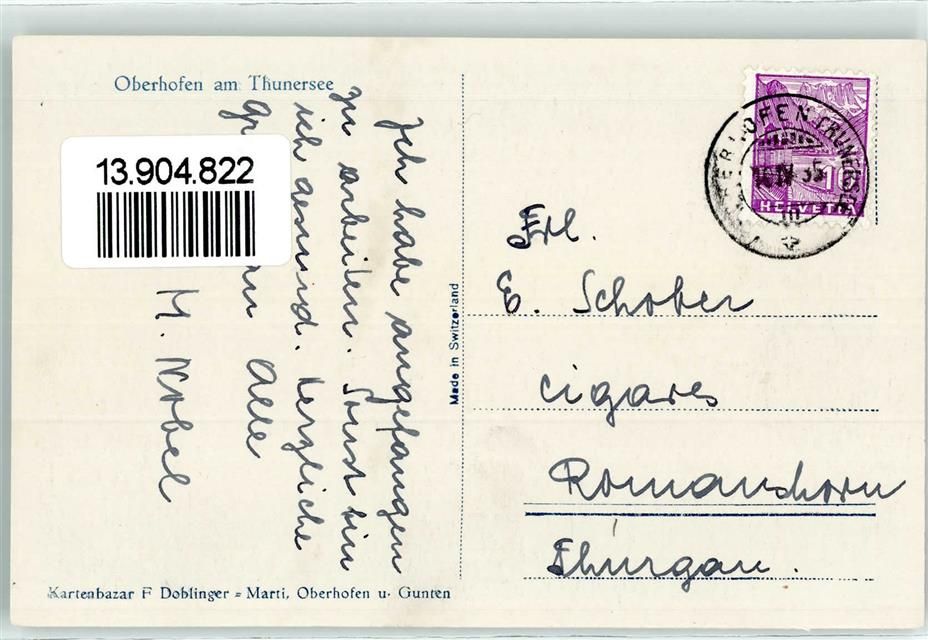 Oberhofen am Thunersee
13.904.822
Ich habe angefangen
zu arbeiten. Sonst bin
ich gesund. Herzliche
an Alle
M. Nobel
Made in Switzerland
HELVETIA
35
Frl.
E. Schober
Cigares
Romanshorn
Thurgau.
Kartenbazar F Doblinger = Marti, Oberhofen u. Gunten